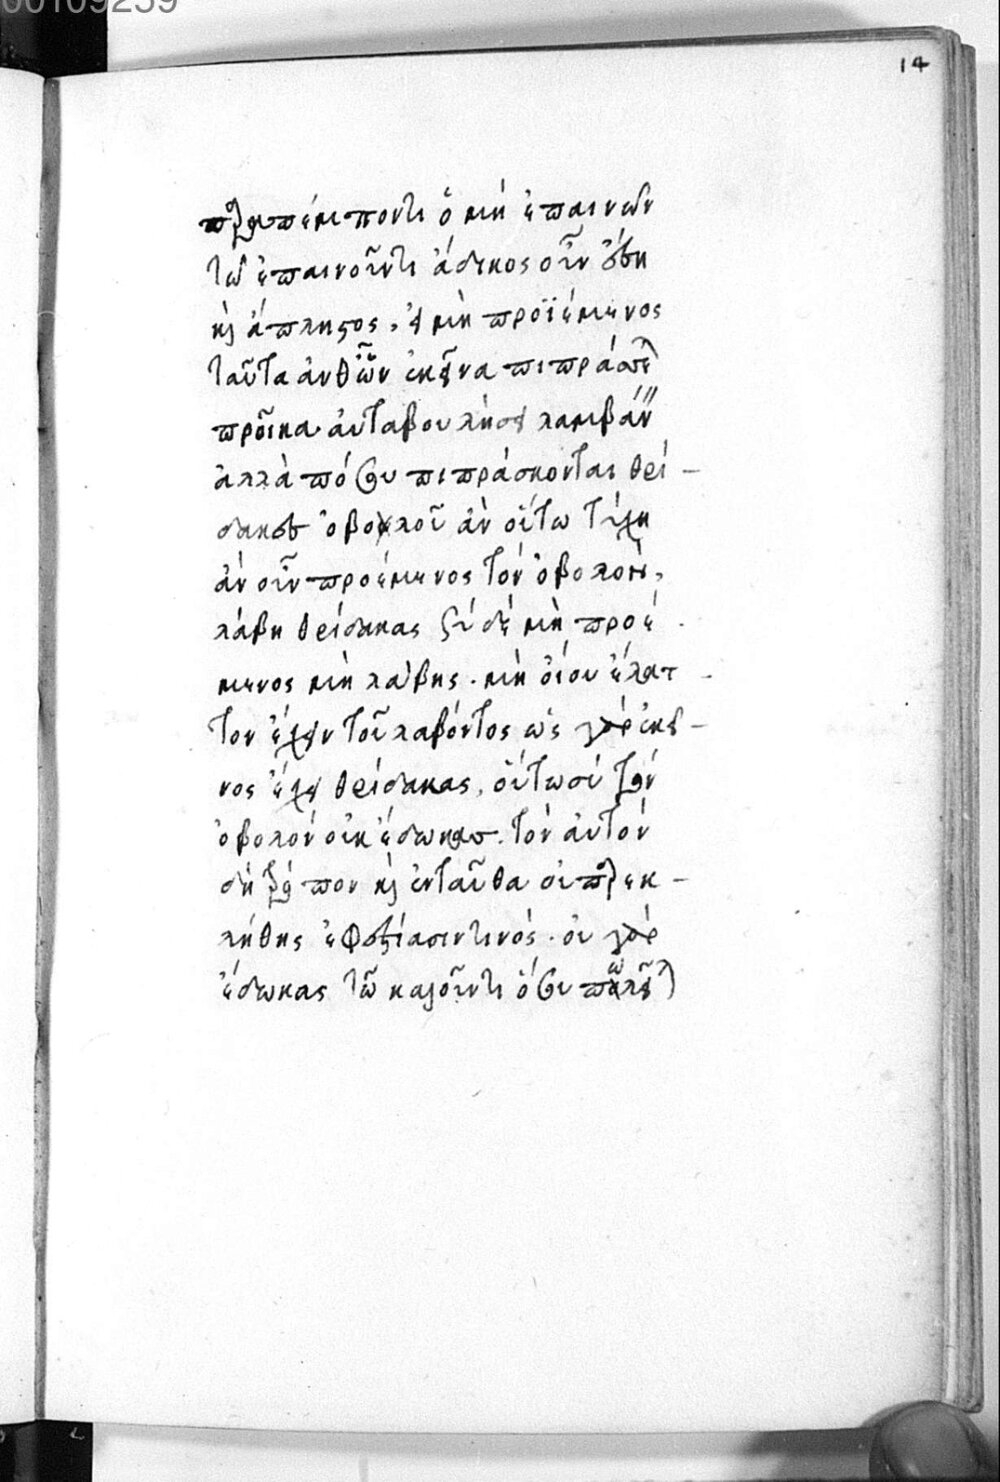 00109259
14
παραπέμποντι ὁ μὴ ἐπαινῶν
τῷ ἐπαινοῦντι ἄδικος οὖν ἔση
καὶ ἄπληστος, εἰ μὴ προϊέμενος
ταῦτα ἀνθ' ὧν ἐκεῖνα πιπράσκεται
προῖκα αὐτὰ βουλήσει λαμβάνειν
ἀλλὰ πόσου πιπράσκονται θρί-
δακες ὀβολοῦ ἂν οὕτω τύχη
ἂν οὖν προέμενος τὸν ὀβολὸν,
λάβη θρίδακας σὺ δὲ μὴ προέ
μενος μὴ λάβης. μὴ οἴου ἔλατ-
τον ἔχειν τοῦ λαβόντος ὡς γὰρ ἐκεῖ-
νος ἔχει θρίδακας, οὕτω σύ τὸν
ὀβολὸν οὐκ ἔδωκας. τὸν αὐτὸν
δὴ τρόπον καὶ ἐνταῦθα οὐ παρεκ-
λήθης ἐφ' ἑστίασίν τινός. οὐ γὰρ
ἔδωκας τῷ καλοῦντι ὅσου πωλεῖ